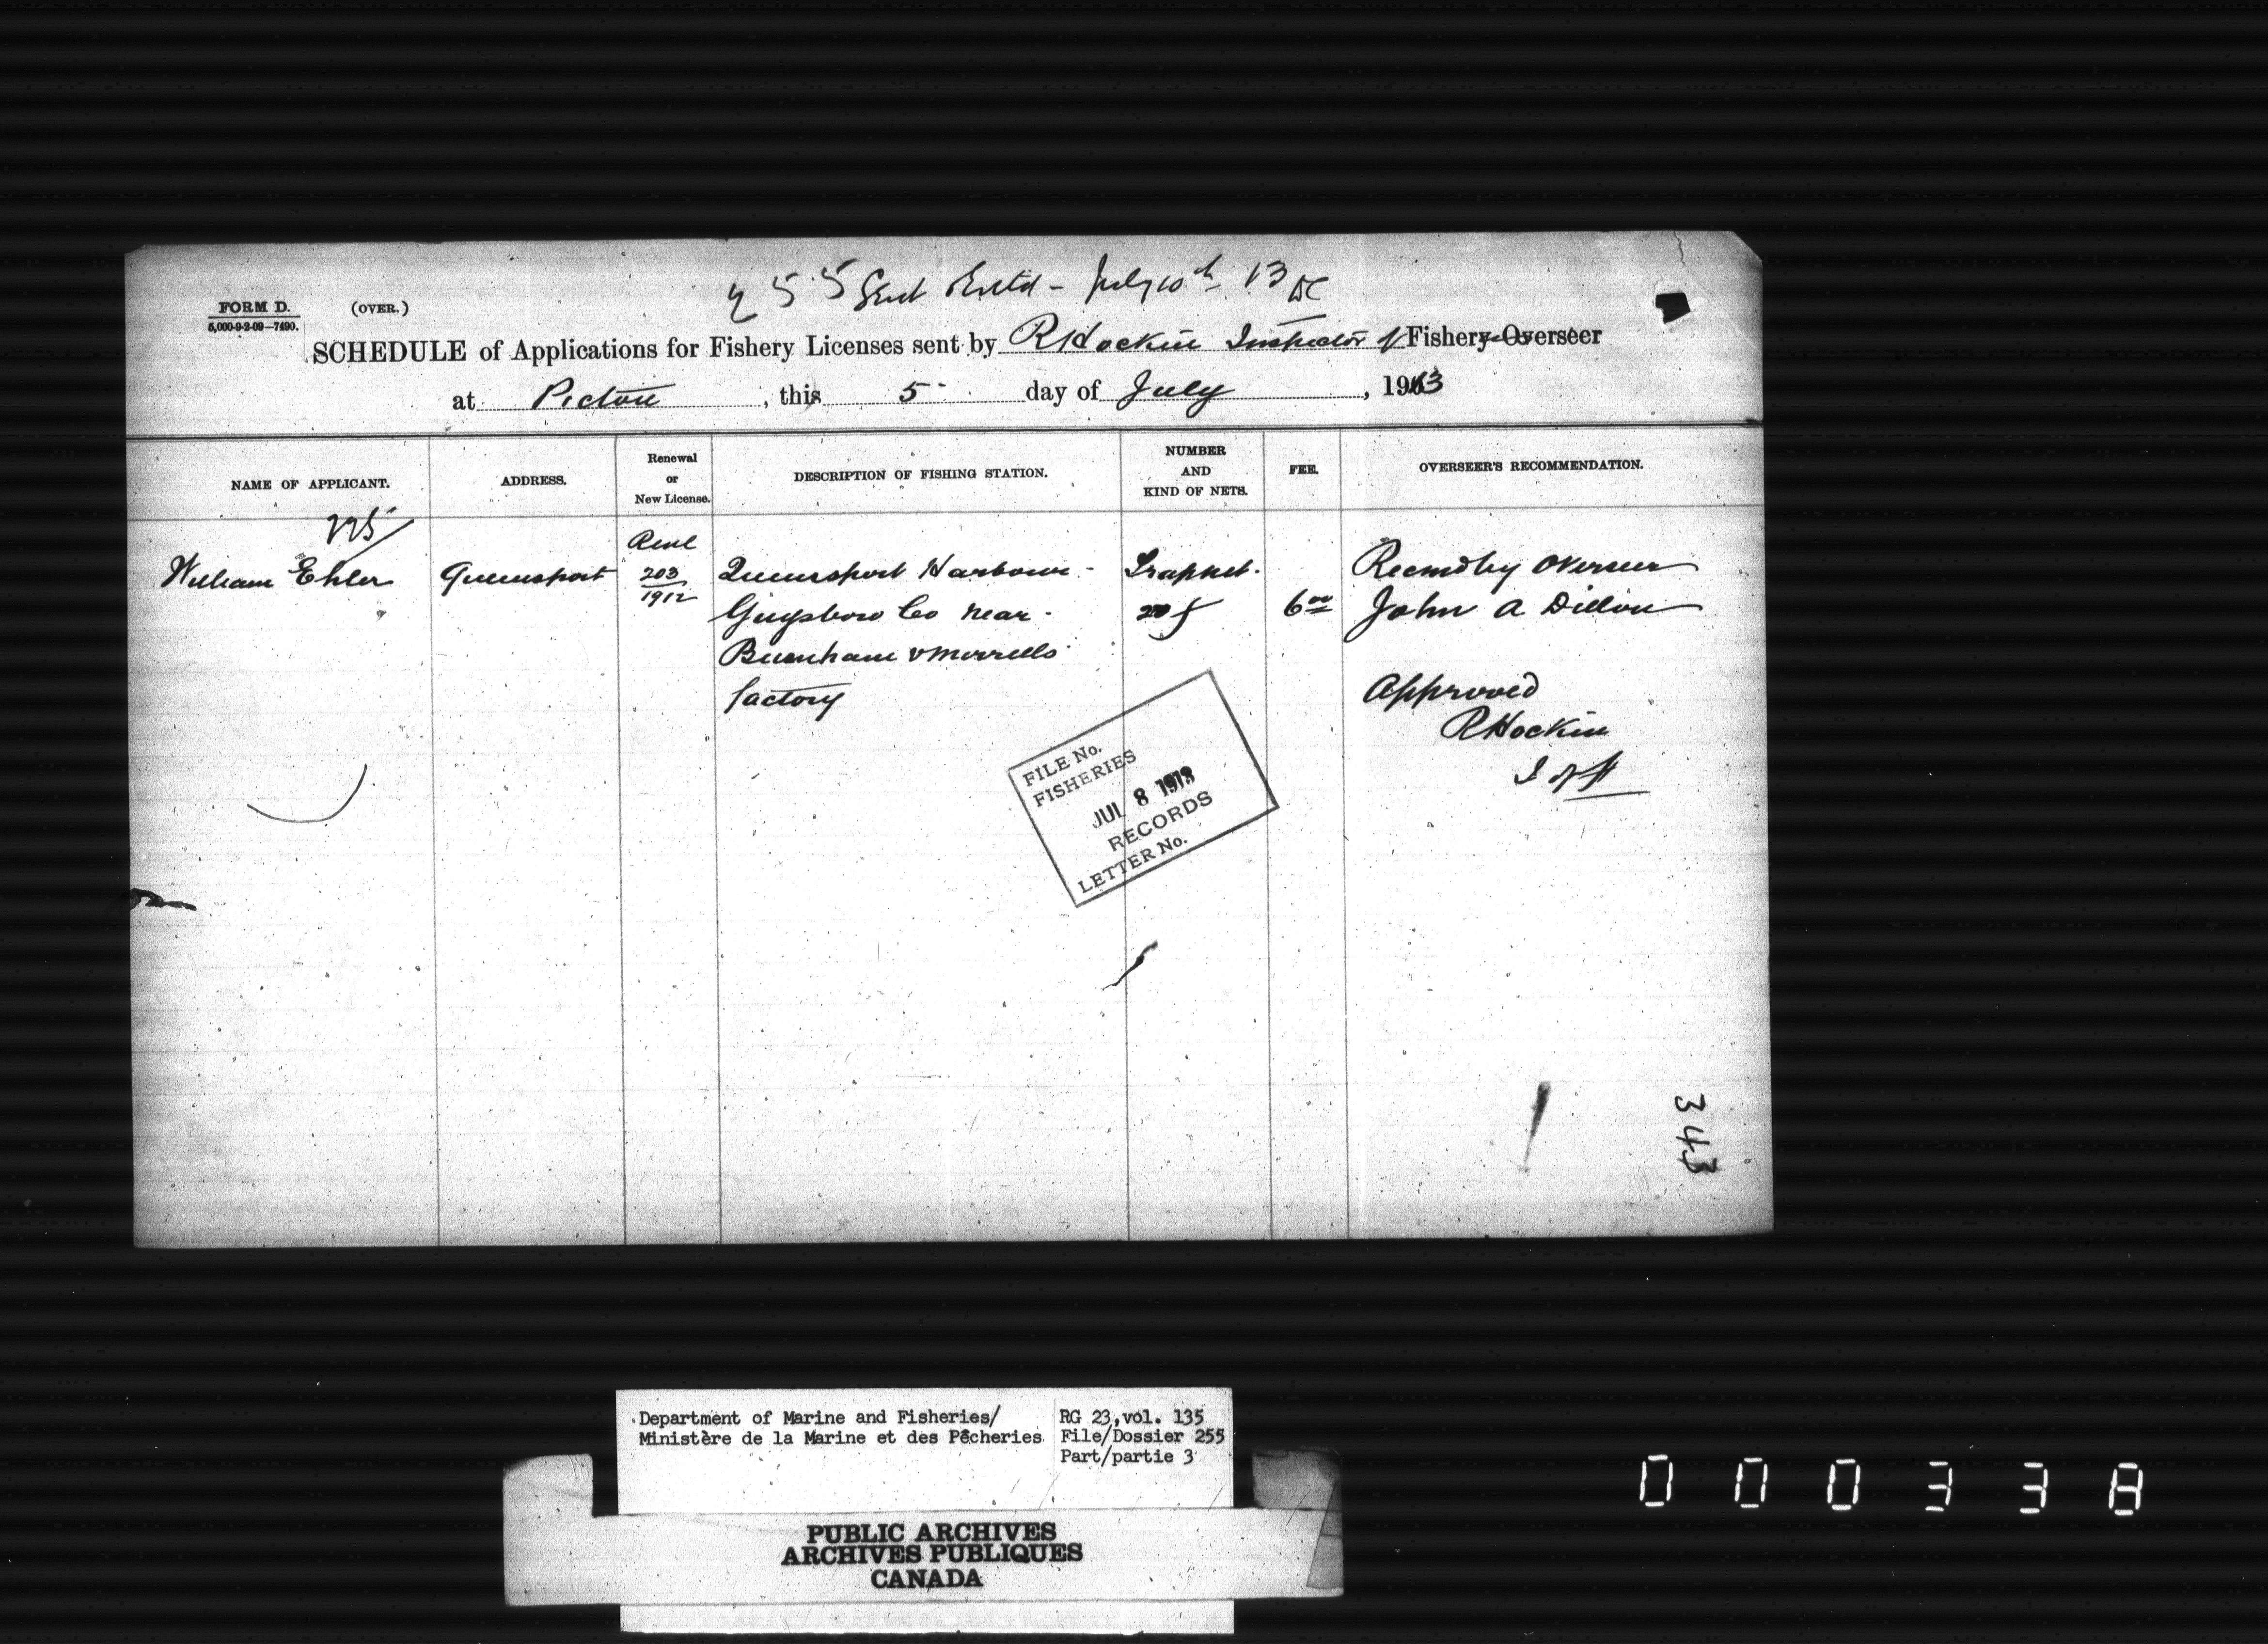 255 Sent Extd - July 10th 13 DC
FORM D. (OVER.)
5,000-9-2-09-7490.
SCHEDULE of Applications for Fishery Licenses sent by R Hockin Inspector of Fishery Overseer
at Pictou, this 5 day of July, 1913
NAME OF APPLICANT. ADDRESS. Renewal or New License. DESCRIPTION OF FISHING STATION. NUMBER AND KIND OF NETS. FEE. OVERSEER'S RECOMMENDATION.
225
William Ehler Queensport Renl 203/1912 Queensport Harbour - Trapnet. Recmd by Overseer
Guysboro Co near - 20 f 6 00 John A Dillon
Burnham & Morrells
factory
Approved
R Hockin
I of F
FILE No.
FISHERIES
JUL 8 1913
RECORDS
LETTER No.
343
Department of Marine and Fisheries/ RG 23,vol. 135
Ministère de la Marine et des Pêcheries File/Dossier 255
Part/partie 3
PUBLIC ARCHIVES
ARCHIVES PUBLIQUES
CANADA
000338